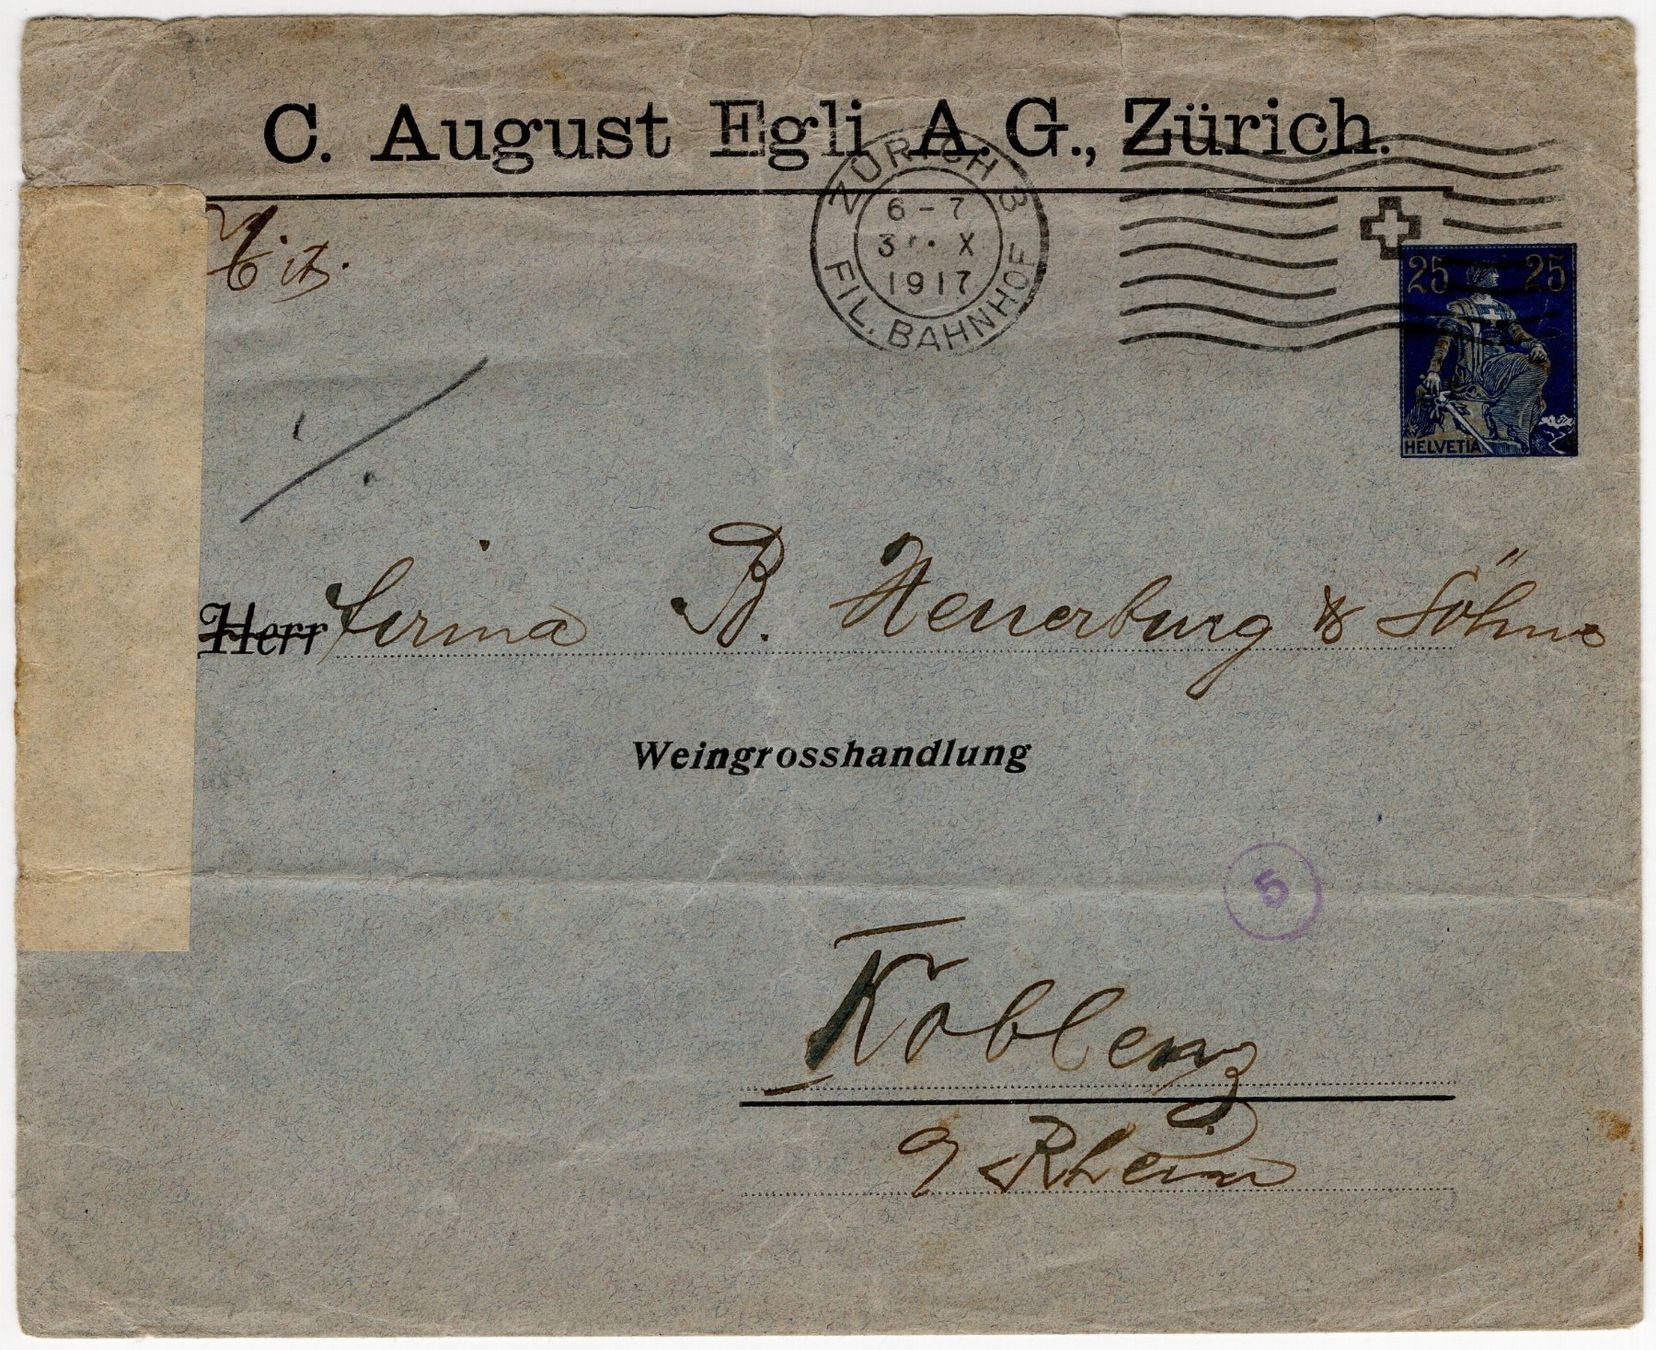 C. August Egli A. G., Zürich.
ZÜRICH 3
6-7
X
1917
FIL. BAHNHOF
25 25
HELVETIA
Herr Firma B. Heuerburg & Söhne
Weingrosshandlung
5
Koblenz
Rhein